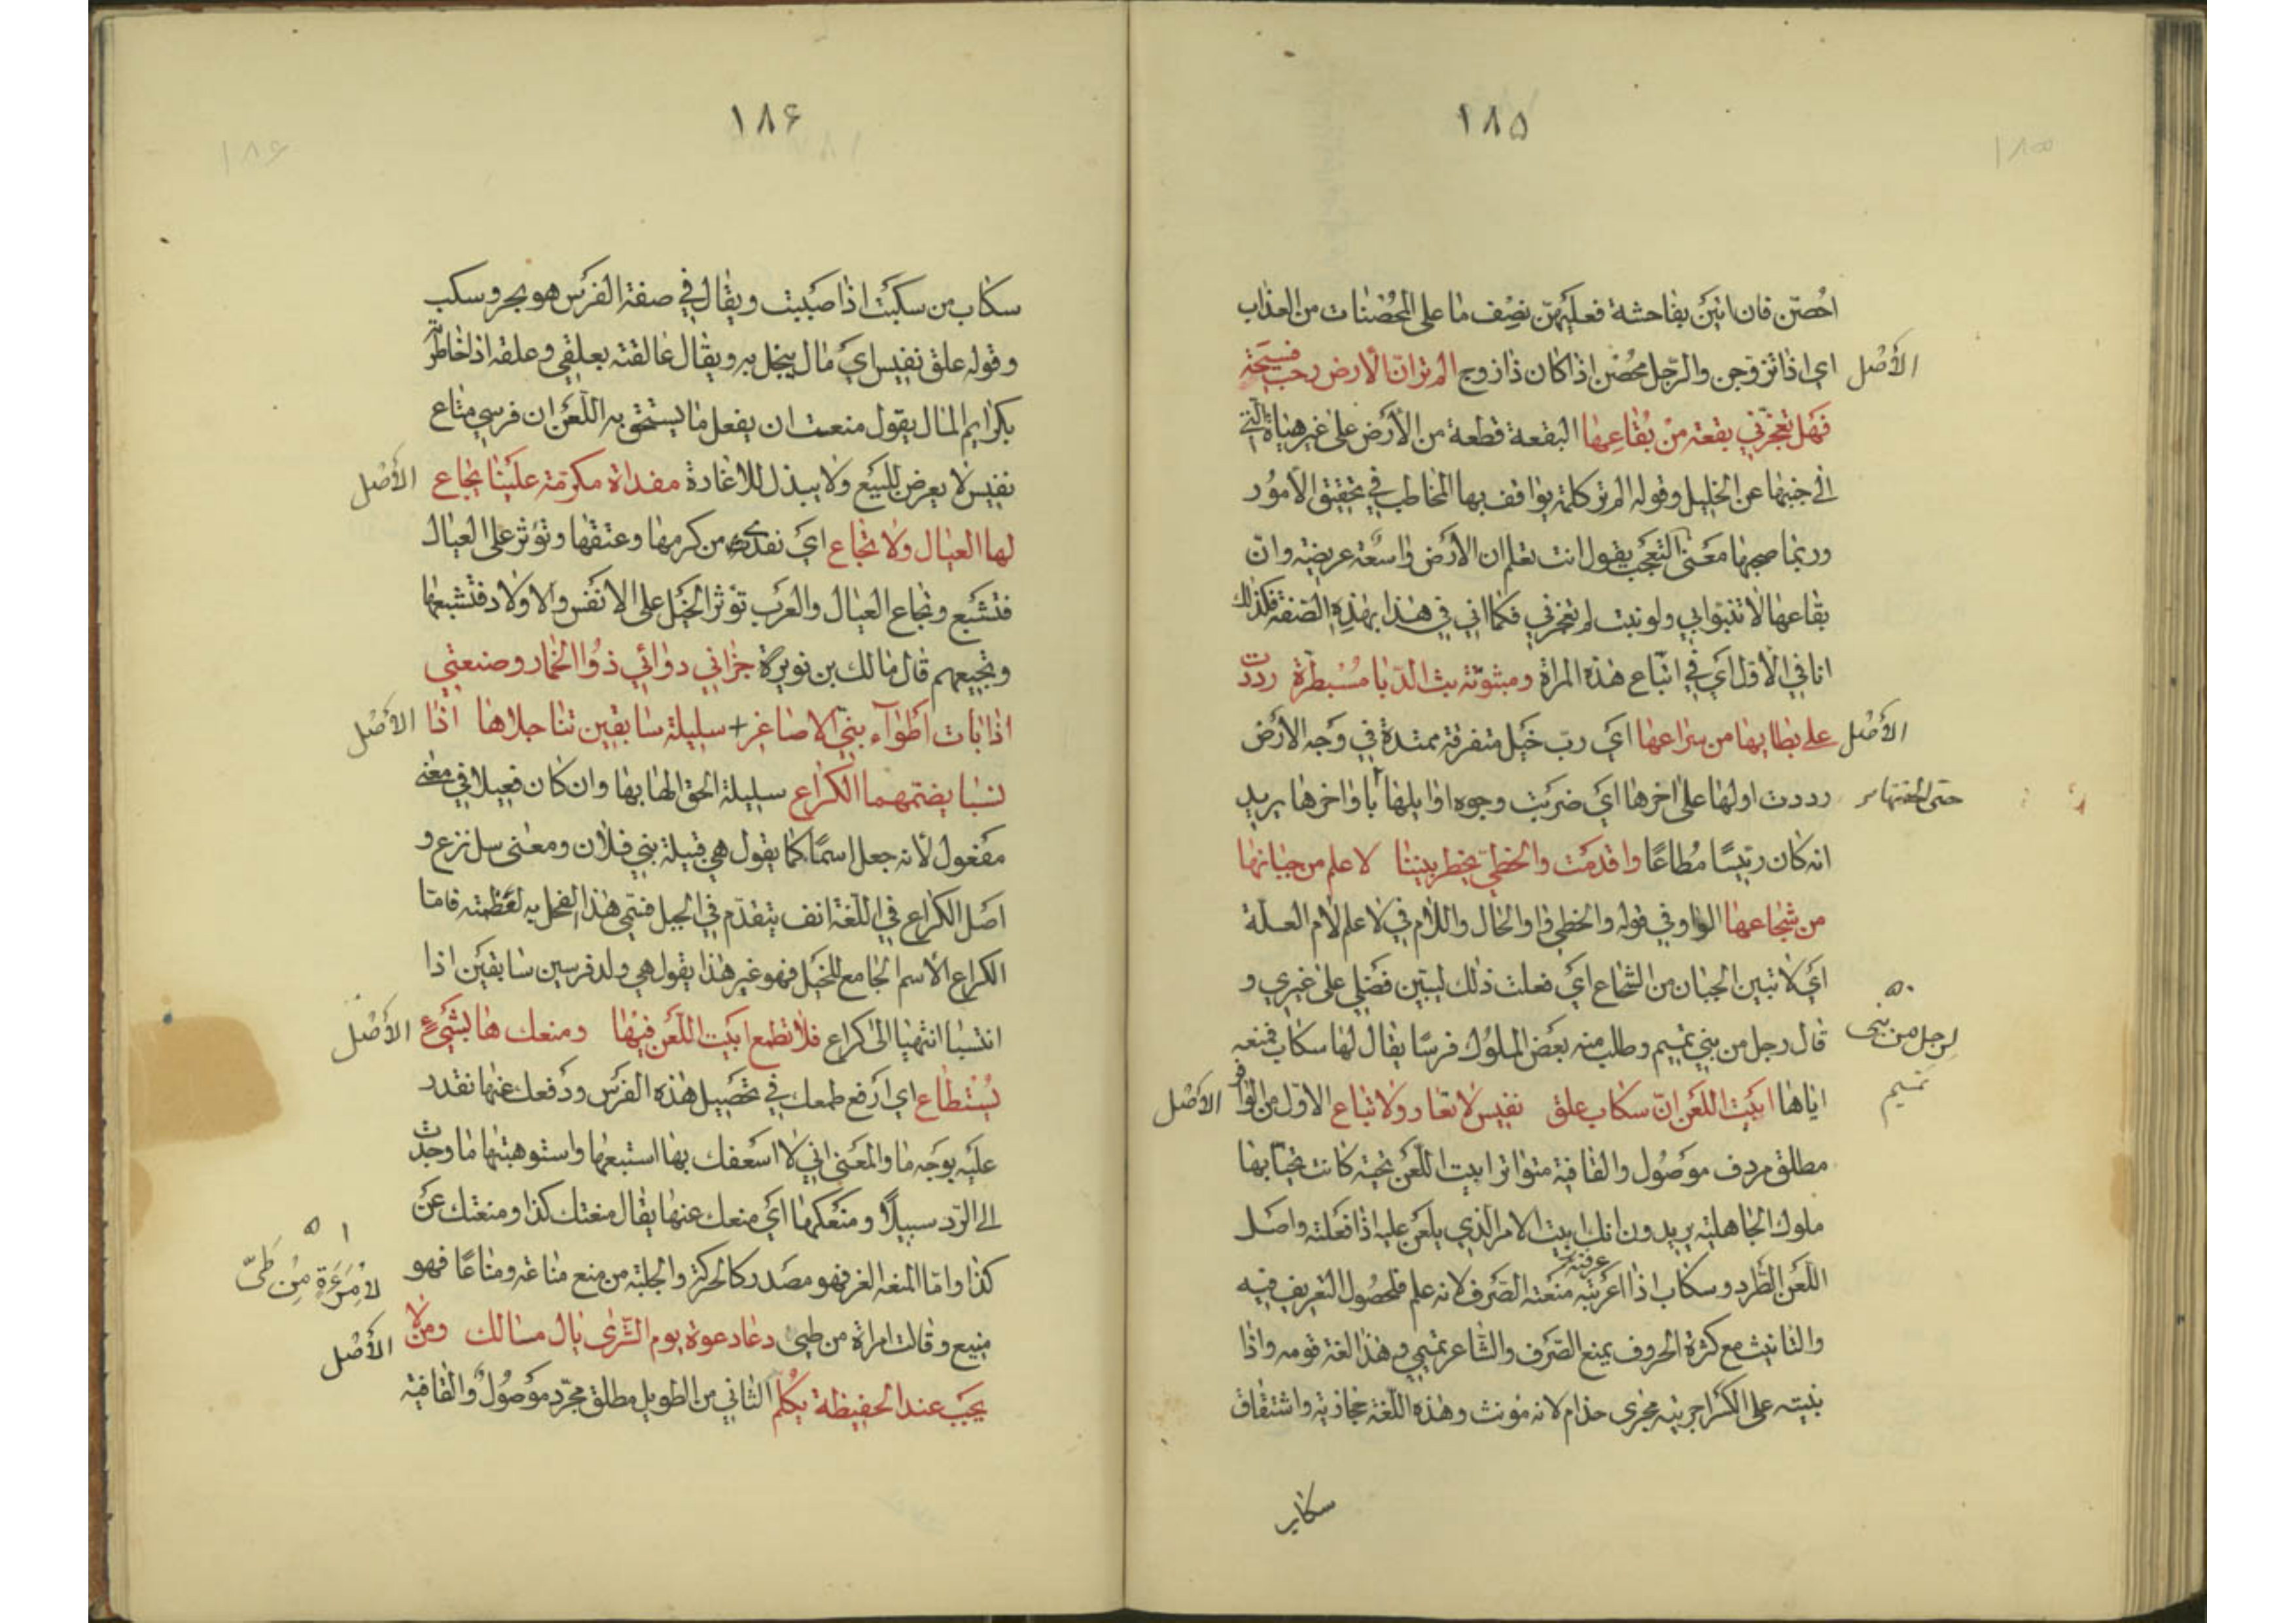 ١٨٥
احُصنّ فان اتيَن بفاحشة فعليهنّ نصِف ما على المحُصَنات من العذاب
اي اذا تزوّجن والرّجل محُصَن اذا كان ذا زوج الم تر انّ الأرض رحب فسيحَة الأصْل
فهَل تعجزّني بقعة منْ بُقاعِها البقعة قطعة من الأرَض على غير هيأة التي
الى جنبها عن الخليل وقوله الم تر كلمة يواقف بها المخاطب في تحقيق الأموُر
وربّما صحبها معَنى التعّجّب يقول انت تعلم ان الأرَض واسعَة عريضة وانّ
بقاعها لا تنبوا بي ولو نبت لم تعجزني فكما اني في هذا بهذِهِ الصّفة فكذلك
انا في الأوّل اَي في اتّباع هذه المراة ومبثوثة بثّ الدّبا مُسْبطرّة رددت
على بطايها من سراعها ايَ ربّ خيَل متفرقة ممتدة في وجَه الأرَض الأصْل
رددت اولها على اخرها ايَ ضرَبت وجوه اوايلها باواخرها يريد حتى الحقتها
انه كان رئيسًا مُطاعًا واقدمَت والخطيّ يخطر بيننا لاعلم من جبانها
من شجاعها الواو في قوله والخطي واو الحال واللام في لاعلم لام العلّة
ايَ لاتبين الجبان من الشجاع ايَ فعلت ذلك ليتبيّن فضَلي على غيَري و
٥٠
قال رجل من بني تميم وطلب منه بعَض الملوُك فرسًا يقال لها سكاب فمنعه لرجل من بنى تميم
اياها ابيَت اللعَن انّ سكاب علق نفيس لاتعار ولا تباع الاوّل من الوافر الأصْل
مطلق مردف موَصُول والقافية متواتر ابيت اللّعَن تحيّة كانت تحيّا بها
ملوك الجاهلية يريدون انك ابيت الامر الّذي يلعَن عليه اذا فعَلته واصَل
اللّعَن الطّرد وسكاب اذا اعرَبته منعَته الصّرَف لانه علم فلحصُول التعريف فيه
والتانيث مع كثرة الحروف يمنع الصّرَف والشاعر تميميّ وهذا لغة قومه واذا
بنيته على الكسَر اجريته مجرى حذام لانه مؤنث وهذه اللّغة حجازية واشتقاق
سكاب
١٨۶
سكاب من سكبَت اذا صبَبت ويقال في صفة الفرسَ هو بحر وسكب
وقوله علق نفيس ايَ مال يبخل به ويقال عالقته بعلقي وعلقه اذا خاطرته
بكرايم المال يقول منعت ان يفعل ما يستحَق به اللّعَن ان فرسي متاع
نفيس لا يعرض للبيَع ولا يبذل للاعارة مفداة مكرّمة علَينا يجاع الأصْل
لها العيال ولا تجاع ايَ نفديّها من كرمها وعتقها وتؤثر على العيال
فتشبَع ويجاع العيال والعرَب تؤثر الخيَل على الانفَس والأولاد فتشبعها
وتجيعهم قال مالك بن نويرة جزاني دوائي ذوُ الخمار وصنعتي
اذا بات اَطواء بنيّ الاصاغر + سليلة سابقين تناجلاها اذا الأصْل
نسبا يضمّهما الكراع سليلة الحق الها بها وان كان فعيلا في معنى
مفعول لأنه جعل اسمًا كما يقول هي قبيلة بني فلان ومعَنى سل نزع و
اصَل الكراع في اللّغة انف يتقدّم في الجبل فسّمي هذا الفحل به لعظمته فامّا
الكراع الاسم الجامع للخيَل فهو غير هذا يقول هي ولد فرسين سابقيَن اذا
انتسَبا انتهيا الى كراع فلا تطمع ابيَت اللّعَن فيها ومنعك ها بشيَءٍ الأصْل
يُسْتطاع اي ارَفع طمعك في تحصَيل هذه الفرسَ ودَفعك عنها نقدر
عليَه بوجَه ما والمعَنى اني لا اسعَفك بها استبعتها واستوهبتها ما وجدت
الى الردّ سبيلًا ومنعَكها ايَ منعك عنها يقال منعتك كذا ومنعتك عنَ
كذا واما المنعة العز فهو مصَدر كالحركة والجلبة من منع مناعة ومناعًا فهو
٥١
منيع وقالت امراة من طيى دعا دعوة يوم الشّرى يال مالك ومن لا لأمرَءَةٍ مِنْ طَىّ
يجبَ عند الحفيظة يُكلَم الثاني من الطويل مطلق مجّرد موَصُول والقافية الأصْل